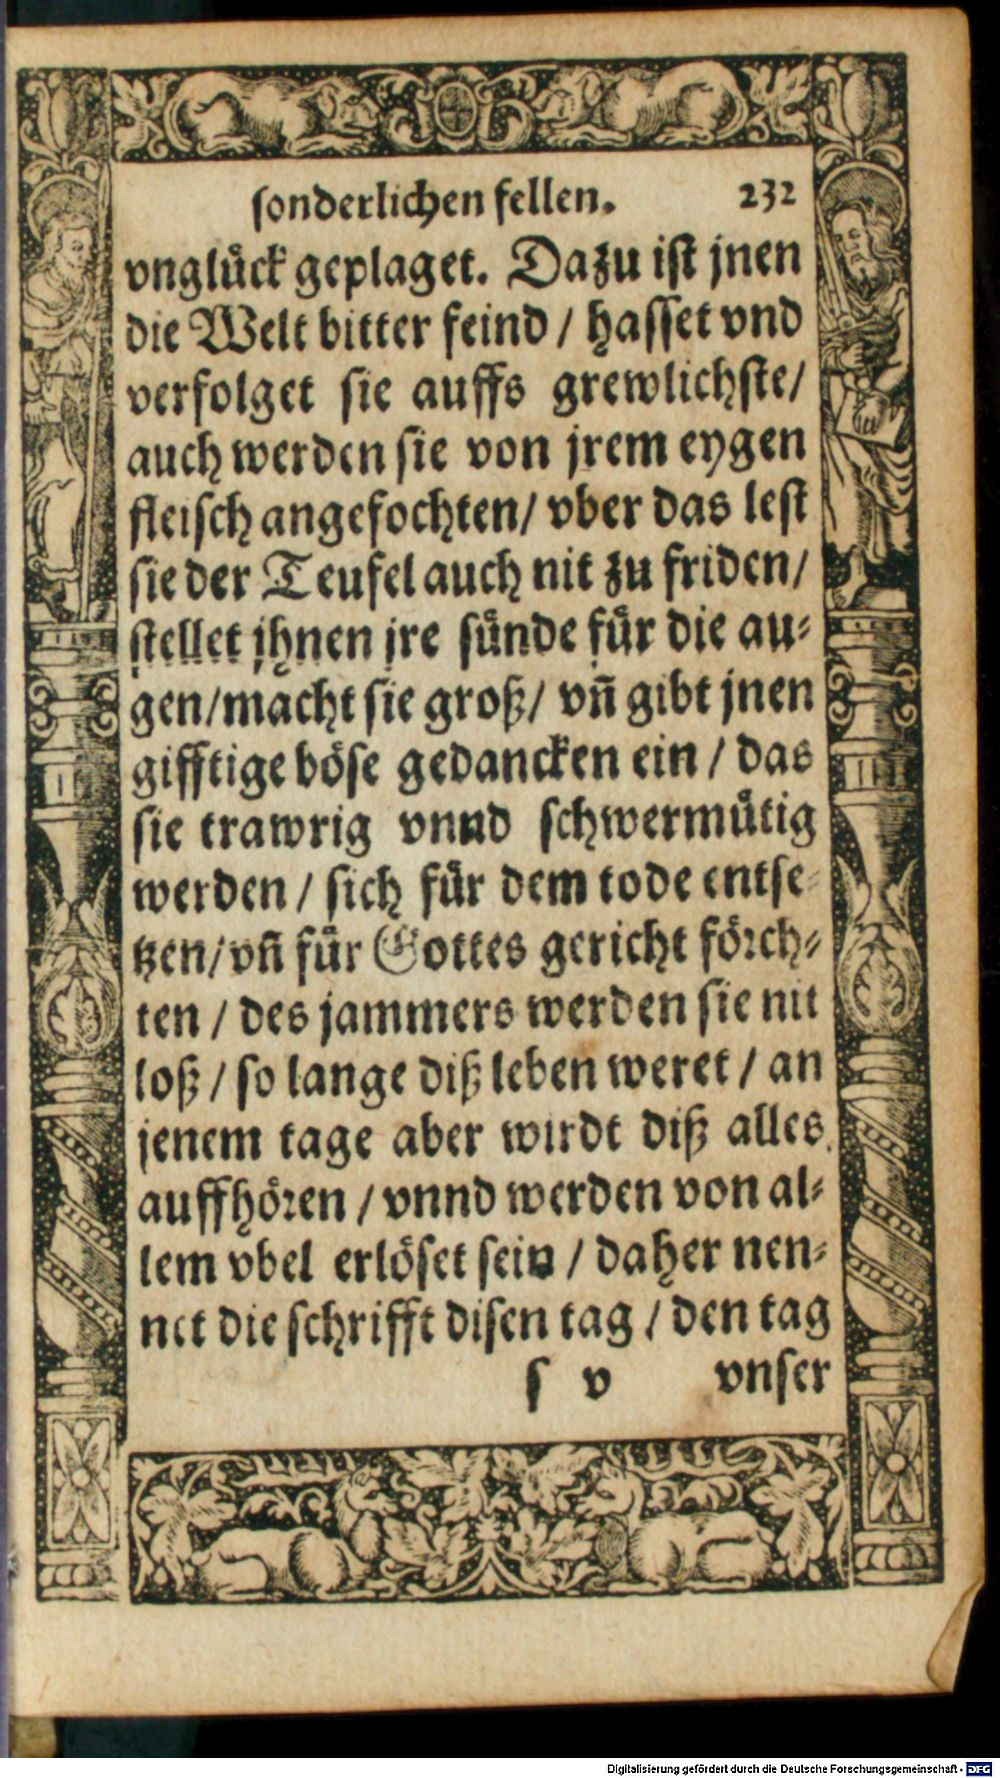 sonderlichen fellen. 232
vnglück geplaget. Dazu ist jnen
die Welt bitter feind / hasset vnd
verfolget sie auffs grewlichste/
auch werden sie von jrem eygen
fleisch angefochten/ vber das lest
sie der Teufel auch nit zu friden/
stellet jhnen jre sünde für die au⸗
gen/macht sie groß/ vñ gibt jnen
gifftige böse gedancken ein / das
sie trawrig vnnd schwermütig
werden / sich für dem tode entse⸗
tzen/vñ für Gottes gericht förch⸗
ten / des jammers werden sie nit
loß / so lange diß leben weret / an
jenem tage aber wirdt diß alles
auffhören / vnnd werden von al⸗
lem vbel erlöset sein / daher nen⸗
net die schrifft disen tag / den tag
s v vnser
Digitalisierung gefördert durch die Deutsche Forschungsgemeinschaft - DFG